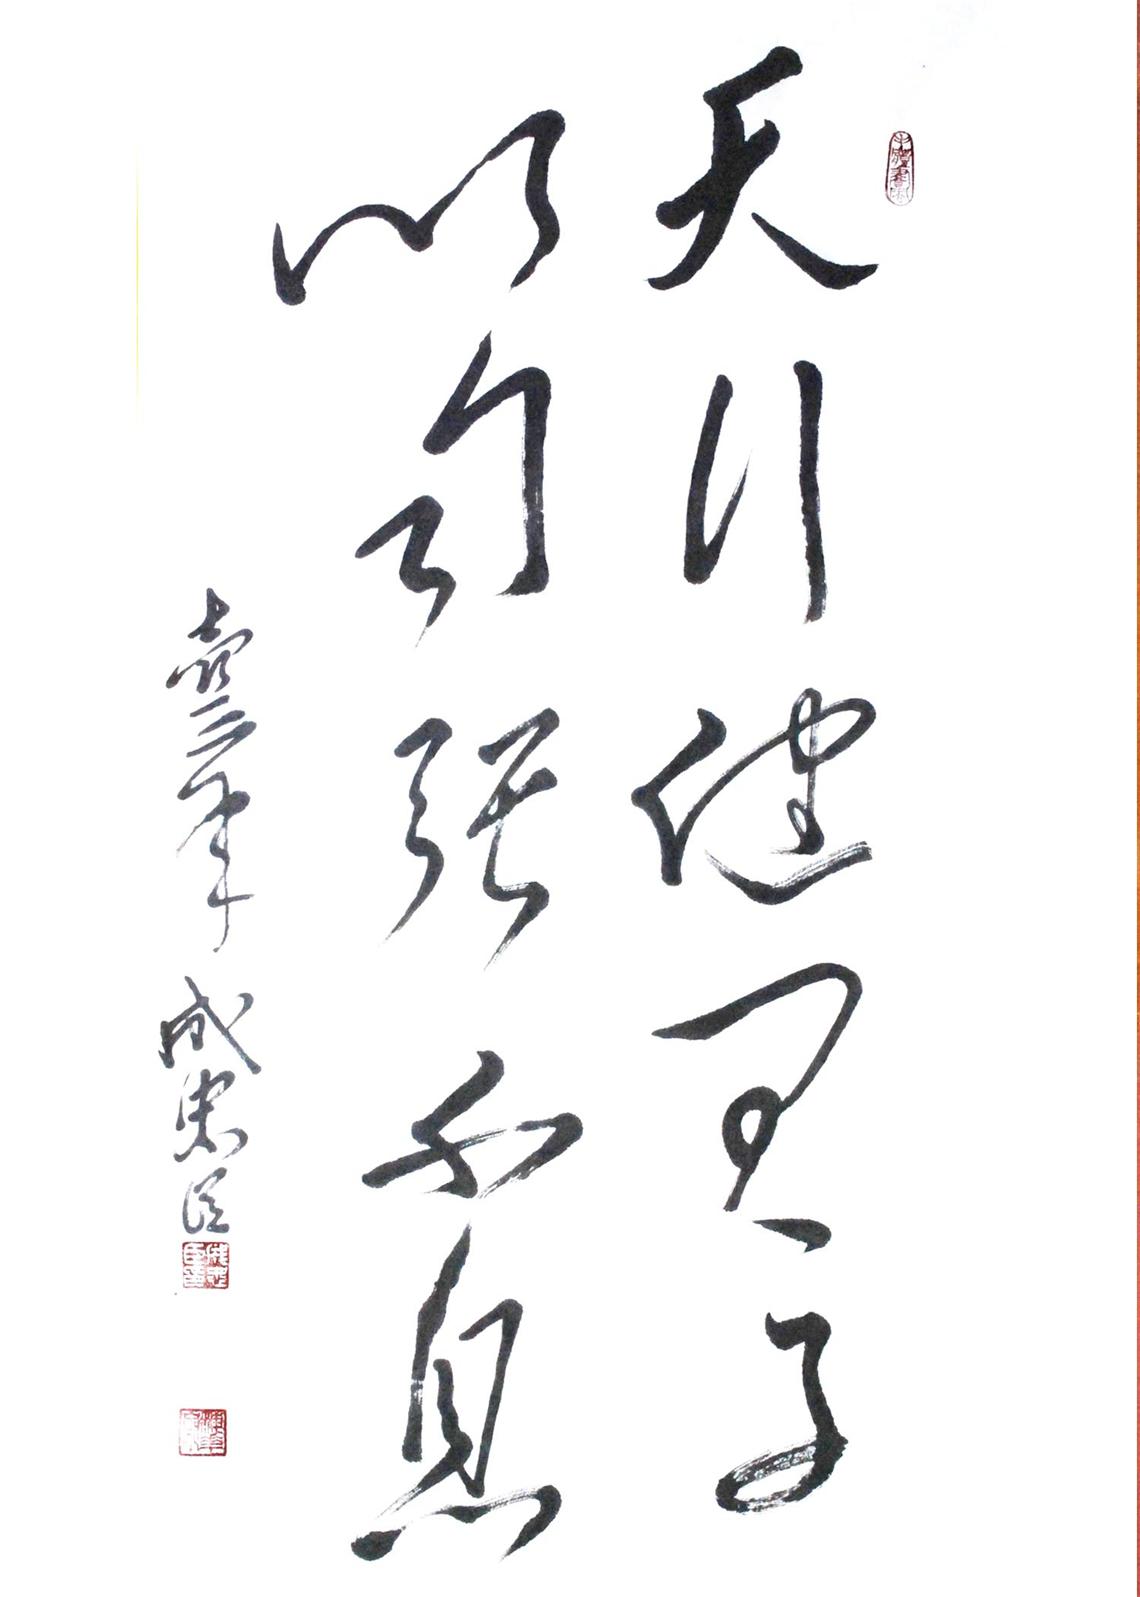 天行健君子
以自强不息
壹三年 成忠臣